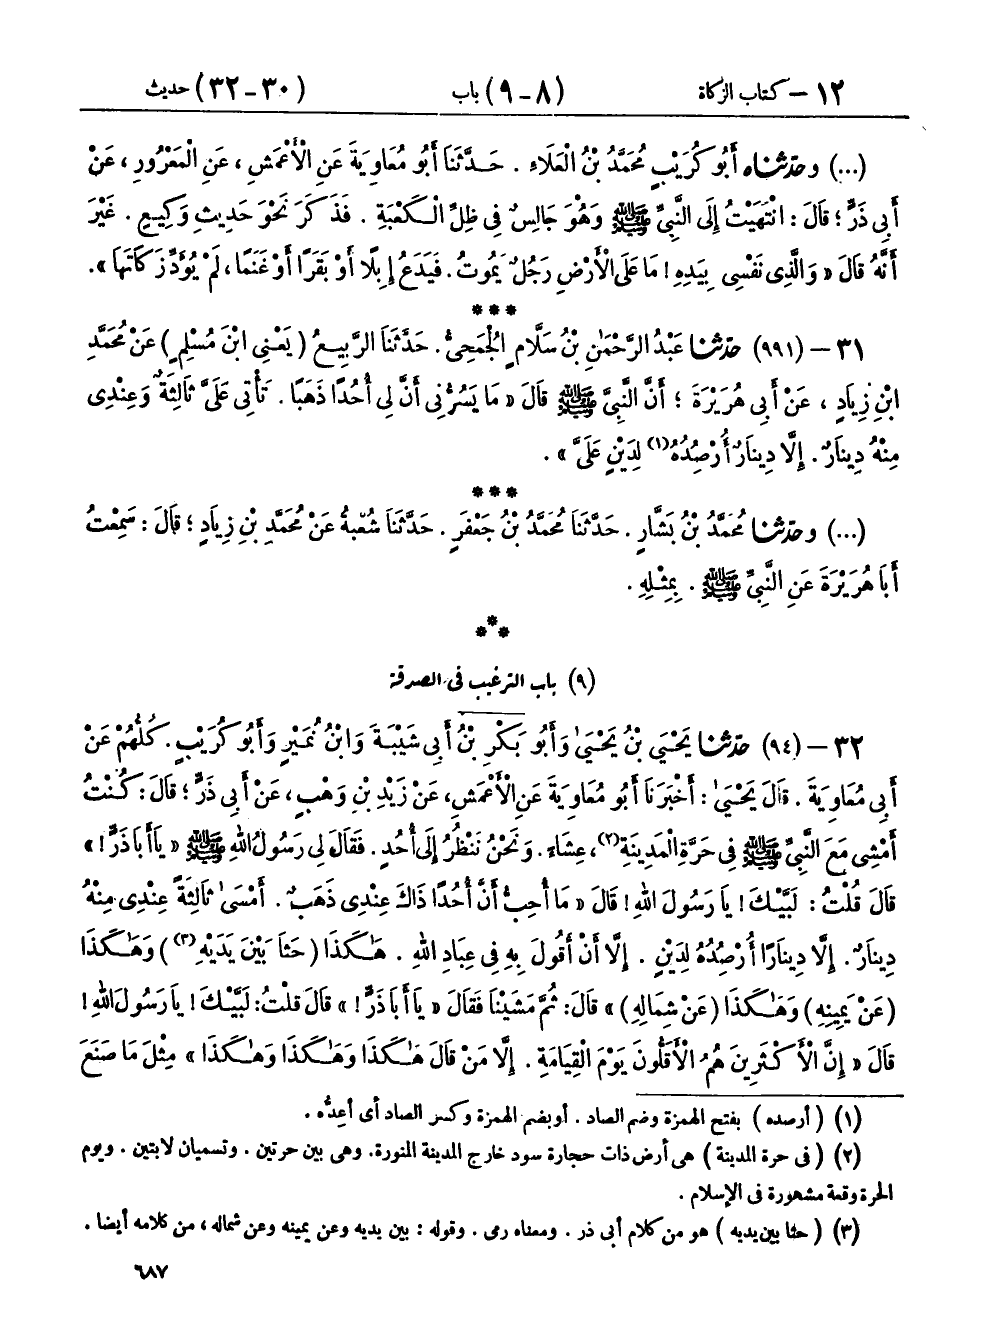 ١٢ – كتاب الزكاة (٨ – ٩) باب (٣٠ – ٣٢) حديث
(...) وحدّثناه أَبُو كُرَيْبٍ مُحَمَّدُ بْنُ الْعَلَاءِ . حَدَّثَنَا أَبُو مُعَاوِيَةَ عَنِ الْأَعْمَشِ ، عَنِ الْمَعْرُورِ ، عَنْ
أَبِي ذَرٍّ ؛ قَالَ : انْتَهَيْتُ إِلَى النَّبِيِّ ﷺ وَهُوَ جَالِسٌ فِي ظِلِّ الْكَعْبَةِ . فَذَكَرَ نَحْوَ حَدِيثِ وَكِيعٍ . غَيْرَ
أَنَّهُ قَالَ « وَالَّذِي نَفْسِي بِيَدِهِ ! مَا عَلَى الْأَرْضِ رَجُلٌ يَمُوتُ . فَيَدَعُ إِبِلًا أَوْ بَقَرًا أَوْ غَنَمًا ، لَمْ يُؤَدِّ زَكَاتَهَا » .
***
٣١ – (٩٩١) حدّثنا عَبْدُ الرَّحْمَٰنِ بْنُ سَلَّامٍ الْجُمَحِيُّ . حَدَّثَنَا الرَّبِيعُ ( يَعْنِي ابْنَ مُسْلِمٍ ) عَنْ مُحَمَّدِ
ابْنِ زِيَادٍ ، عَنْ أَبِي هُرَيْرَةَ ؛ أَنَّ النَّبِيَّ ﷺ قَالَ « مَا يَسُرُّنِي أَنَّ لِي أُحُدًا ذَهَبًا . تَأْتِي عَلَيَّ ثَالِثَةٌ وَعِنْدِي
مِنْهُ دِينَارٌ . إِلَّا دِينَارٌ أُرْصِدُهُ(١) لِدَيْنٍ عَلَيَّ » .
***
(...) وحدّثنا مُحَمَّدُ بْنُ بَشَّارٍ . حَدَّثَنَا مُحَمَّدُ بْنُ جَعْفَرٍ . حَدَّثَنَا شُعْبَةُ عَنْ مُحَمَّدِ بْنِ زِيَادٍ ؛ قَالَ : سَمِعْتُ
أَبَا هُرَيْرَةَ عَنِ النَّبِيِّ ﷺ . بِمِثْلِهِ .
***
(٩) باب الترغيب في الصدقة
٣٢ – (٩٤) حدّثنا يَحْيَى بْنُ يَحْيَىٰ وَأَبُو بَكْرِ بْنُ أَبِي شَيْبَةَ وَابْنُ نُمَيْرٍ وَأَبُو كُرَيْبٍ . كُلُّهُمْ عَنْ
أَبِي مُعَاوِيَةَ . قَالَ يَحْيَىٰ : أَخْبَرَنَا أَبُو مُعَاوِيَةَ عَنِ الْأَعْمَشِ ، عَنْ زَيْدِ بْنِ وَهْبٍ ، عَنْ أَبِي ذَرٍّ ؛ قَالَ : كُنْتُ
أَمْشِي مَعَ النَّبِيِّ ﷺ فِي حَرَّةِ الْمَدِينَةِ(٢) ، عِشَاءً . وَنَحْنُ نَنْظُرُ إِلَى أُحُدٍ . فَقَالَ لِي رَسُولُ اللهِ ﷺ « يَا أَبَا ذَرٍّ ! »
قَالَ قُلْتُ : لَبَّيْكَ ! يَا رَسُولَ اللهِ ! قَالَ « مَا أُحِبُّ أَنَّ أُحُدًا ذَاكَ عِنْدِي ذَهَبٌ . أَمْسَىٰ ثَالِثَةً عِنْدِي مِنْهُ
دِينَارٌ . إِلَّا دِينَارًا أُرْصِدُهُ لِدَيْنٍ . إِلَّا أَنْ أَقُولَ بِهِ فِي عِبَادِ اللهِ . هَٰكَذَا ( حَثَا بَيْنَ يَدَيْهِ(٣) ) وَهَٰكَذَا
( عَنْ يَمِينِهِ ) وَهَٰكَذَا ( عَنْ شِمَالِهِ ) » قَالَ : ثُمَّ مَشَيْنَا فَقَالَ « يَا أَبَا ذَرٍّ ! » قَالَ قُلْتُ : لَبَّيْكَ ! يَا رَسُولَ اللهِ !
قَالَ « إِنَّ الْأَكْثَرِينَ هُمُ الْأَقَلُّونَ يَوْمَ الْقِيَامَةِ . إِلَّا مَنْ قَالَ هَٰكَذَا وَهَٰكَذَا وَهَٰكَذَا » مِثْلَ مَا صَنَعَ
(١) ( أرصده ) بفتح الهمزة وضم الصاد . أو بضم الهمزة وكسر الصاد أي أعِدُّه .
(٢) ( في حرة المدينة ) هي أرض ذات حجارة سود خارج المدينة المنورة. وهي بين حرتين . وتسميان لابتين . ويوم
الحرة وقعة مشهورة في الإسلام .
(٣) ( حثا بين يديه ) هو من كلام أبي ذر . ومعناه رمى . وقوله : بين يديه وعن يمينه وعن شماله ، من كلامه أيضا .
٦٨٧